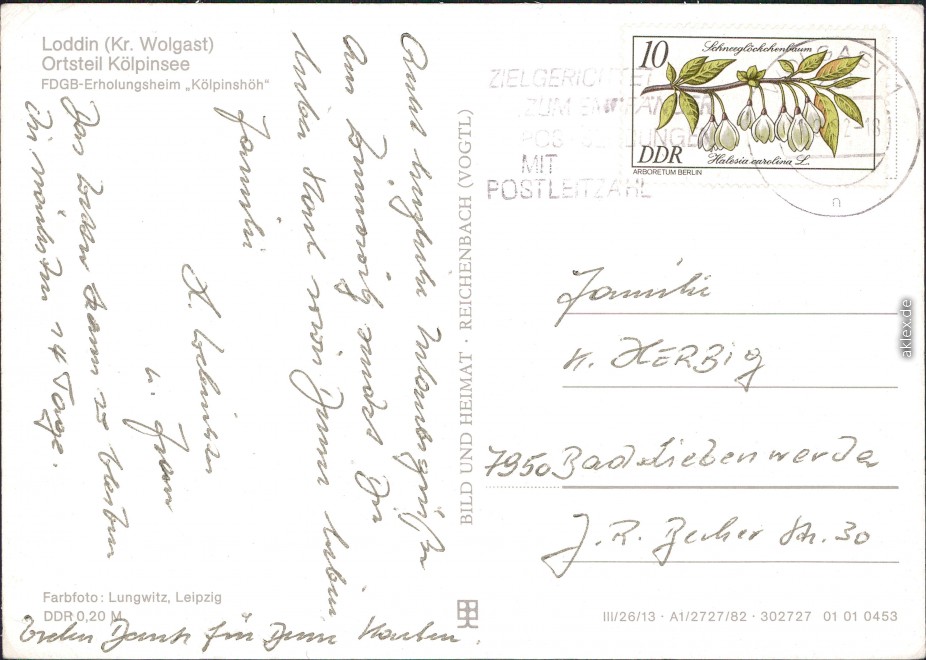 Loddin (Kr. Wolgast)
Ortsteil Kölpinsee
FDGB-Erholungsheim „Kölpinshöh“
Recht herzliche Urlaubsgrüße
am Zinnowitz sendet Dir
lieber Karl sowie Deiner lieben
Familie
K.
u. Frau
Das Wetter kann so bleiben
die nächsten 14 Tage.
Vielen Dank für Deine Karten.
Farbfoto: Lungwitz, Leipzig
DDR 0,20 M
BILD UND HEIMAT · REICHENBACH (VOGTL)
ZIELGERICHTET
ZUM EMPFÄNGER
POSTSENDUNGEN
MIT
POSTLEITZAHL
10
Schneeglöckchenbaum
DDR
Halesia carolina L.
ARBORETUM BERLIN
n
Familie
K. HERBIG
7950 Bad Liebenwerda
J. R. Becher Str. 30
III/26/13 · A1/2727/82 · 302727 01 01 0453
aklex.de